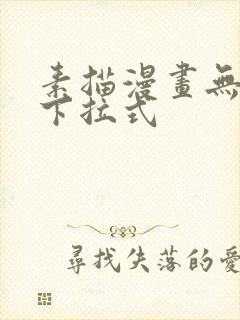 素描漫畫無
下拉式
尋找失落的愛